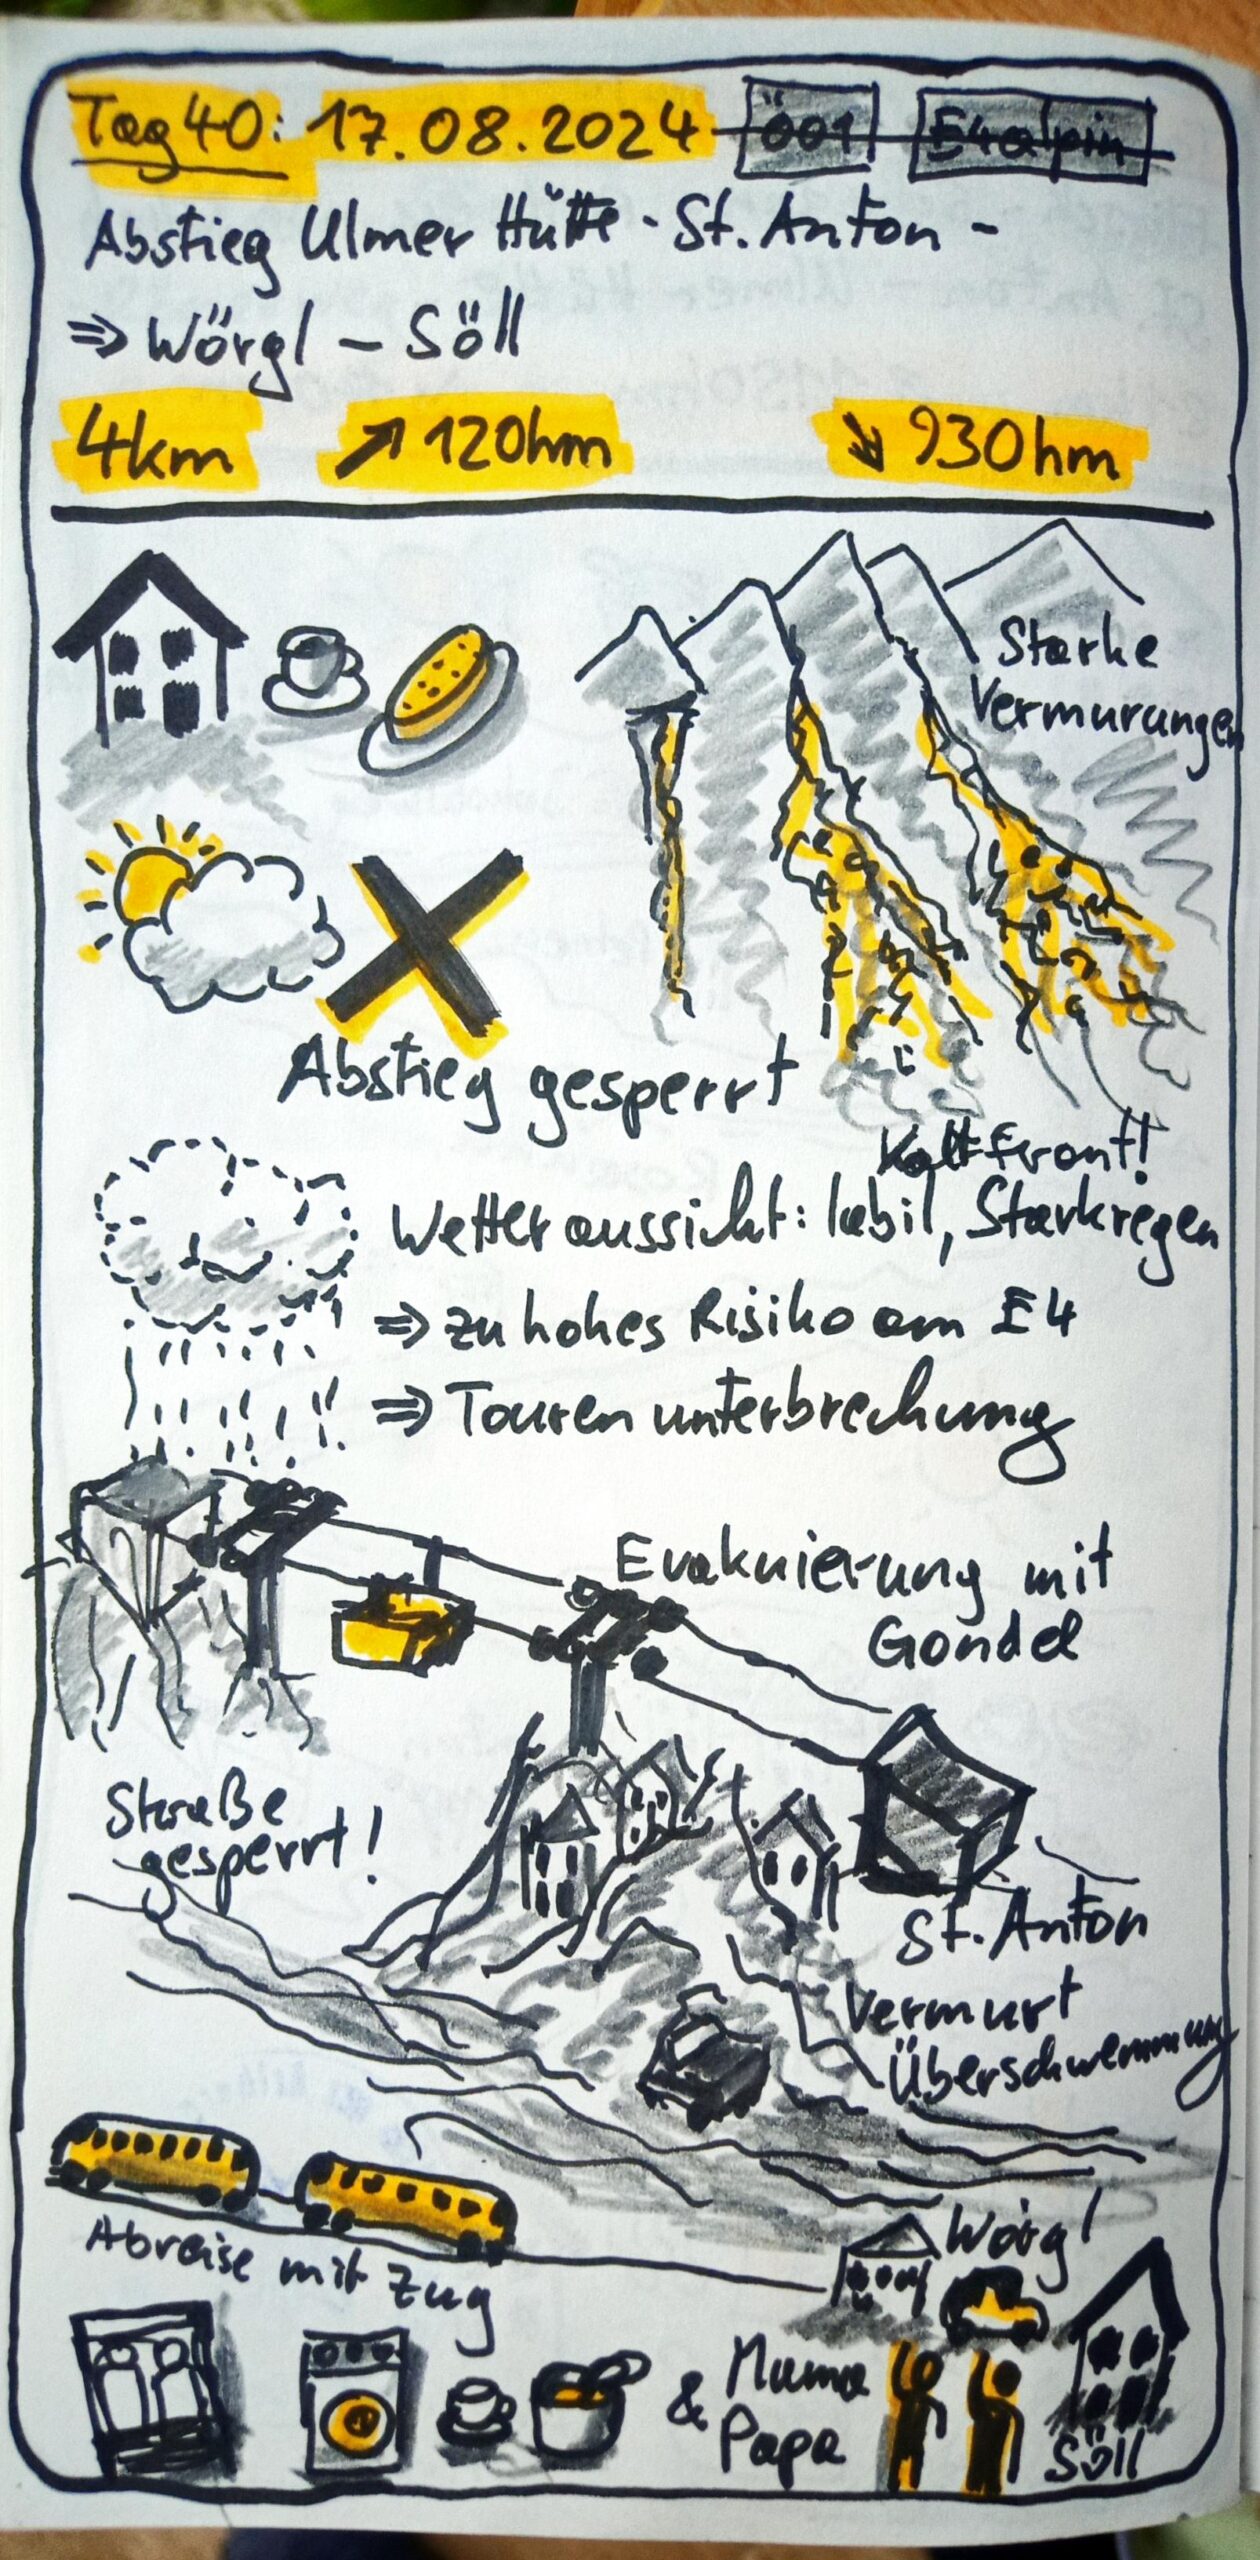 Tag 40: 17.08.2024 Ö01 E4alpin
Abstieg Ulmer Hütte - St. Anton -
⇒ Wörgl - Söll
4km ↗ 120hm ↘ 930hm
Starke
Vermurungen
Abstieg gesperrt
Kaltfront!
Wetteraussicht: labil, Starkregen
⇒ zu hohes Risiko am E4
⇒ Tourenunterbrechung
Evakuierung mit
Gondel
Straße
gesperrt!
St. Anton
Vermurt
Überschwemmung
Abreise mit Zug
Wörgl
& Mama
Papa
Söll